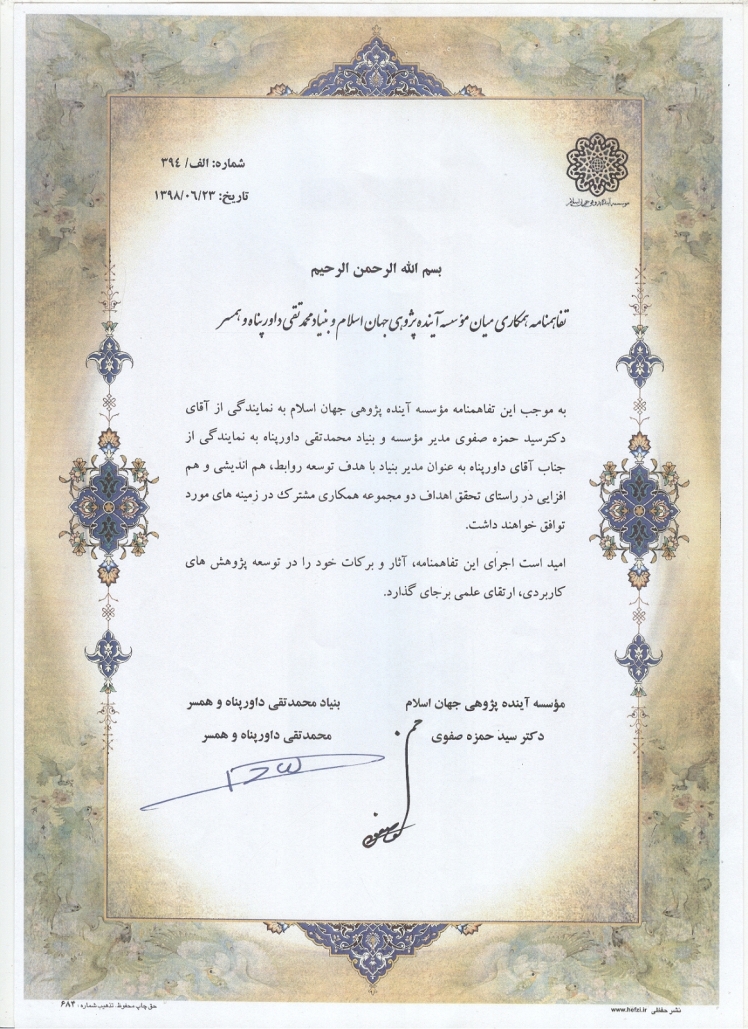 شماره: الف/ ۳۹٤
تاریخ: ۱۳۹۸/۰٦/۲۳
بسم الله الرحمن الرحیم
تفاهمنامه همکاری میان مؤسسه آینده پژوهی جهان اسلام و بنیاد محمدتقی داورپناه و همسر
به موجب این تفاهمنامه مؤسسه آینده پژوهی جهان اسلام به نمایندگی از آقای
دکترسید حمزه صفوی مدیر مؤسسه و بنیاد محمدتقی داورپناه به نمایندگی از
جناب آقای داورپناه به عنوان مدیر بنیاد با هدف توسعه روابط، هم اندیشی و هم
افزایی در راستای تحقق اهداف دو مجموعه همکاری مشترک در زمینه های مورد
توافق خواهند داشت.
امید است اجرای این تفاهمنامه، آثار و برکات خود را در توسعه پژوهش های
کاربردی، ارتقای علمی برجای گذارد.
مؤسسه آینده پژوهی جهان اسلام
دکتر سید حمزه صفوی
بنیاد محمدتقی داورپناه و همسر
محمدتقی داورپناه و همسر
نشر حفظی www.hefzi.ir
حق چاپ محفوظ. تذهیب شماره: ۶۸۴